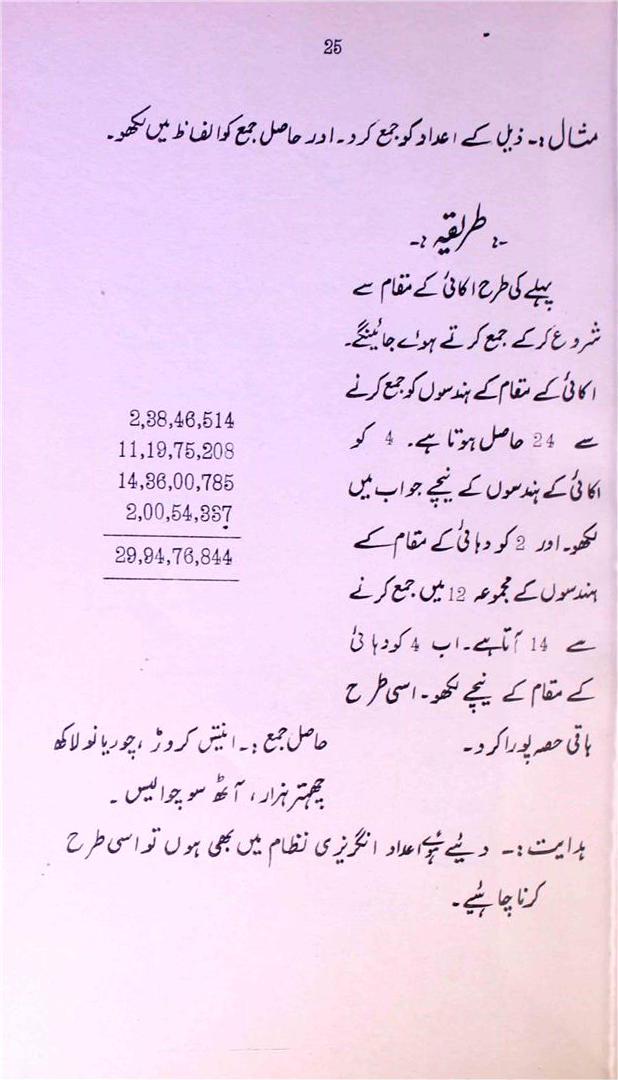 25
مثال :۔ ذیل کے اعداد کو جمع کرو۔ اور حاصل جمع کو الفاظ میں لکھو۔
۔: طریقہ :۔
پہلے کی طرح اکائی کے مقام سے
شروع کرکے جمع کرتے ہوئے جائینگے۔
اکائی کے مقام کے ہندسوں کو جمع کرنے
سے 24 حاصل ہوتا ہے۔ 4 کو
اکائی کے ہندسوں کے نیچے جواب میں
لکھو۔ اور 2 کو دہائی کے مقام کے
ہندسوں کے مجموعہ 12 میں جمع کرنے
سے 14 آتا ہے۔ اب 4 کو دہائی
کے مقام کے نیچے لکھو۔ اسی طرح
باقی حصہ پورا کرو۔
2,38,46,514
11,19,75,208
14,36,00,785
2,00,54,337
29,94,76,844
حاصل جمع :۔ انتیس کروڑ، چوریانو لاکھ
چھہتر ہزار، آٹھ سو چوالیس۔
ہدایت :۔ دئیے ہوئے اعداد انگریزی نظام میں بھی ہوں تو اسی طرح
کرنا چاہئیے۔